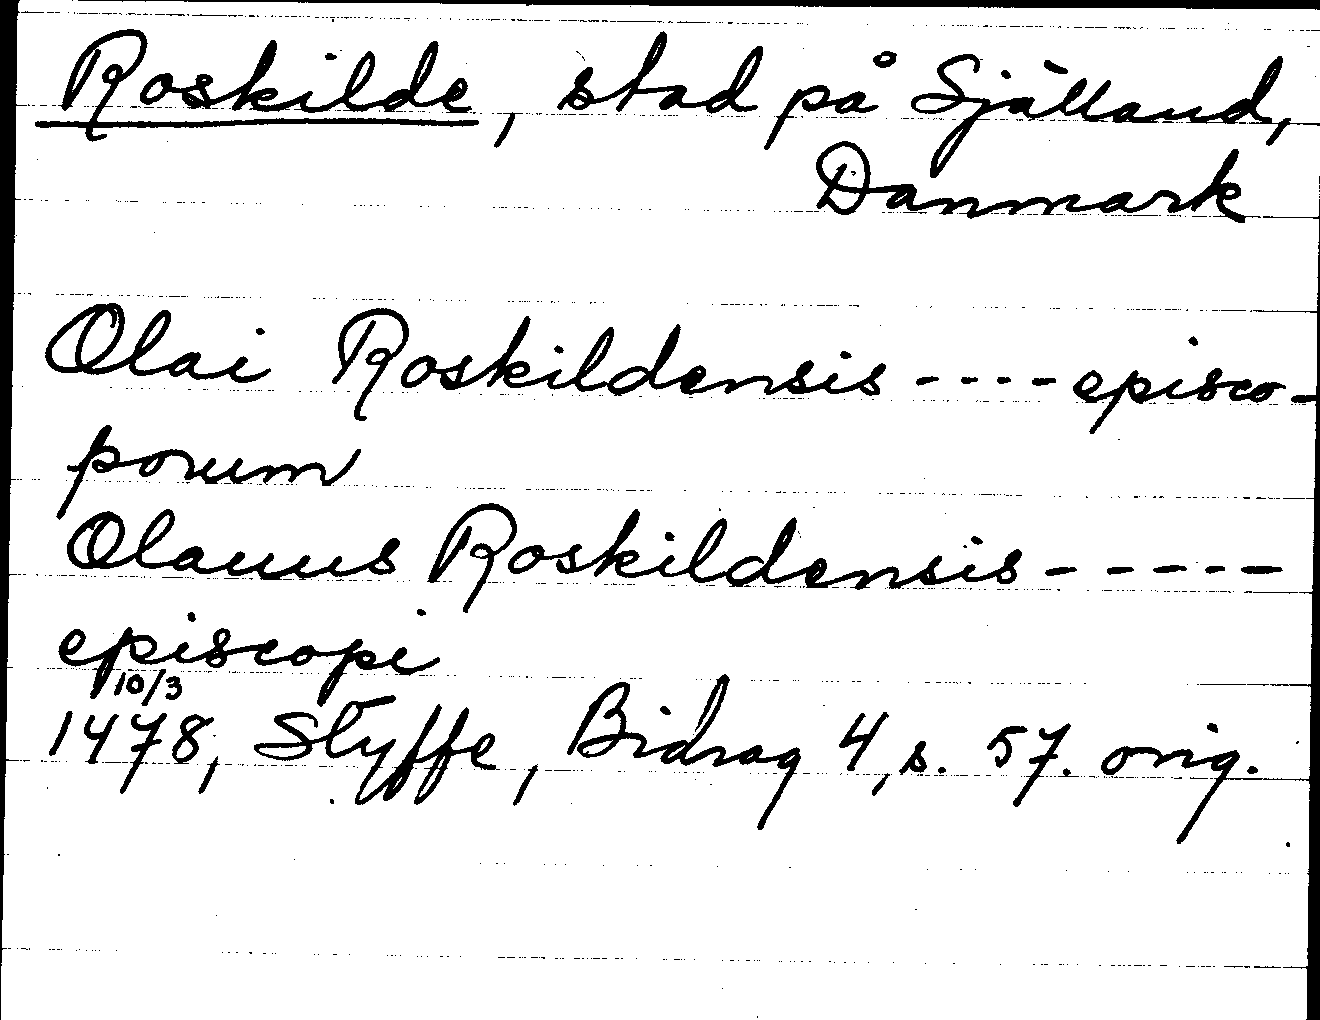 Roskilde, stad på Själland,
Danmark
Olai Roskildensis - - - - episco-
porum
Olauus Roskildensis - - - - -
episcopi
10/3
1478, Styffe, Bidrag 4, s. 57. orig.